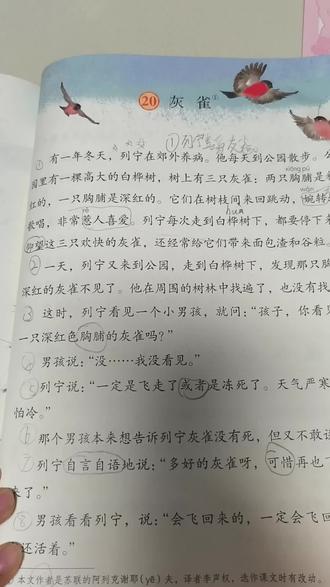 20 灰雀①
① 有一年冬天，列宁在郊外养病。他每天到公园散步。公
园里有一棵高大的白桦树，树上有三只灰雀：两只胸脯是粉
xiōng pú
红的，一只胸脯是深红的。它们在树枝间来回跳动，婉转
wǎn
歌唱，非常惹人喜爱。列宁每次走到白桦树下，都要停下来
rě
huà
仰望这三只欢快的灰雀，还经常给它们带来面包渣和谷粒。
② 一天，列宁又来到公园，走到白桦树下，发现那只胸
深红的灰雀不见了。他在周围的树林中找遍了，也没有找
③ 这时，列宁看见一个小男孩，就问：“孩子，你看见
一只深红色胸脯的灰雀吗？”
④ 男孩说：“没……我没看见。”
⑤ 列宁说：“一定是飞走了或者是冻死了。天气严寒
怕冷。”
⑥ 那个男孩本来想告诉列宁灰雀没有死，但又不敢
⑦ 列宁自言自语地说：“多好的灰雀呀，可惜再也
来了。”
⑧ 男孩看看列宁，说：“会飞回来的，一定会飞回
还活着。”
本文作者是苏联的阿列克谢耶（yē）夫，译者李声权，选作课文时有改动。